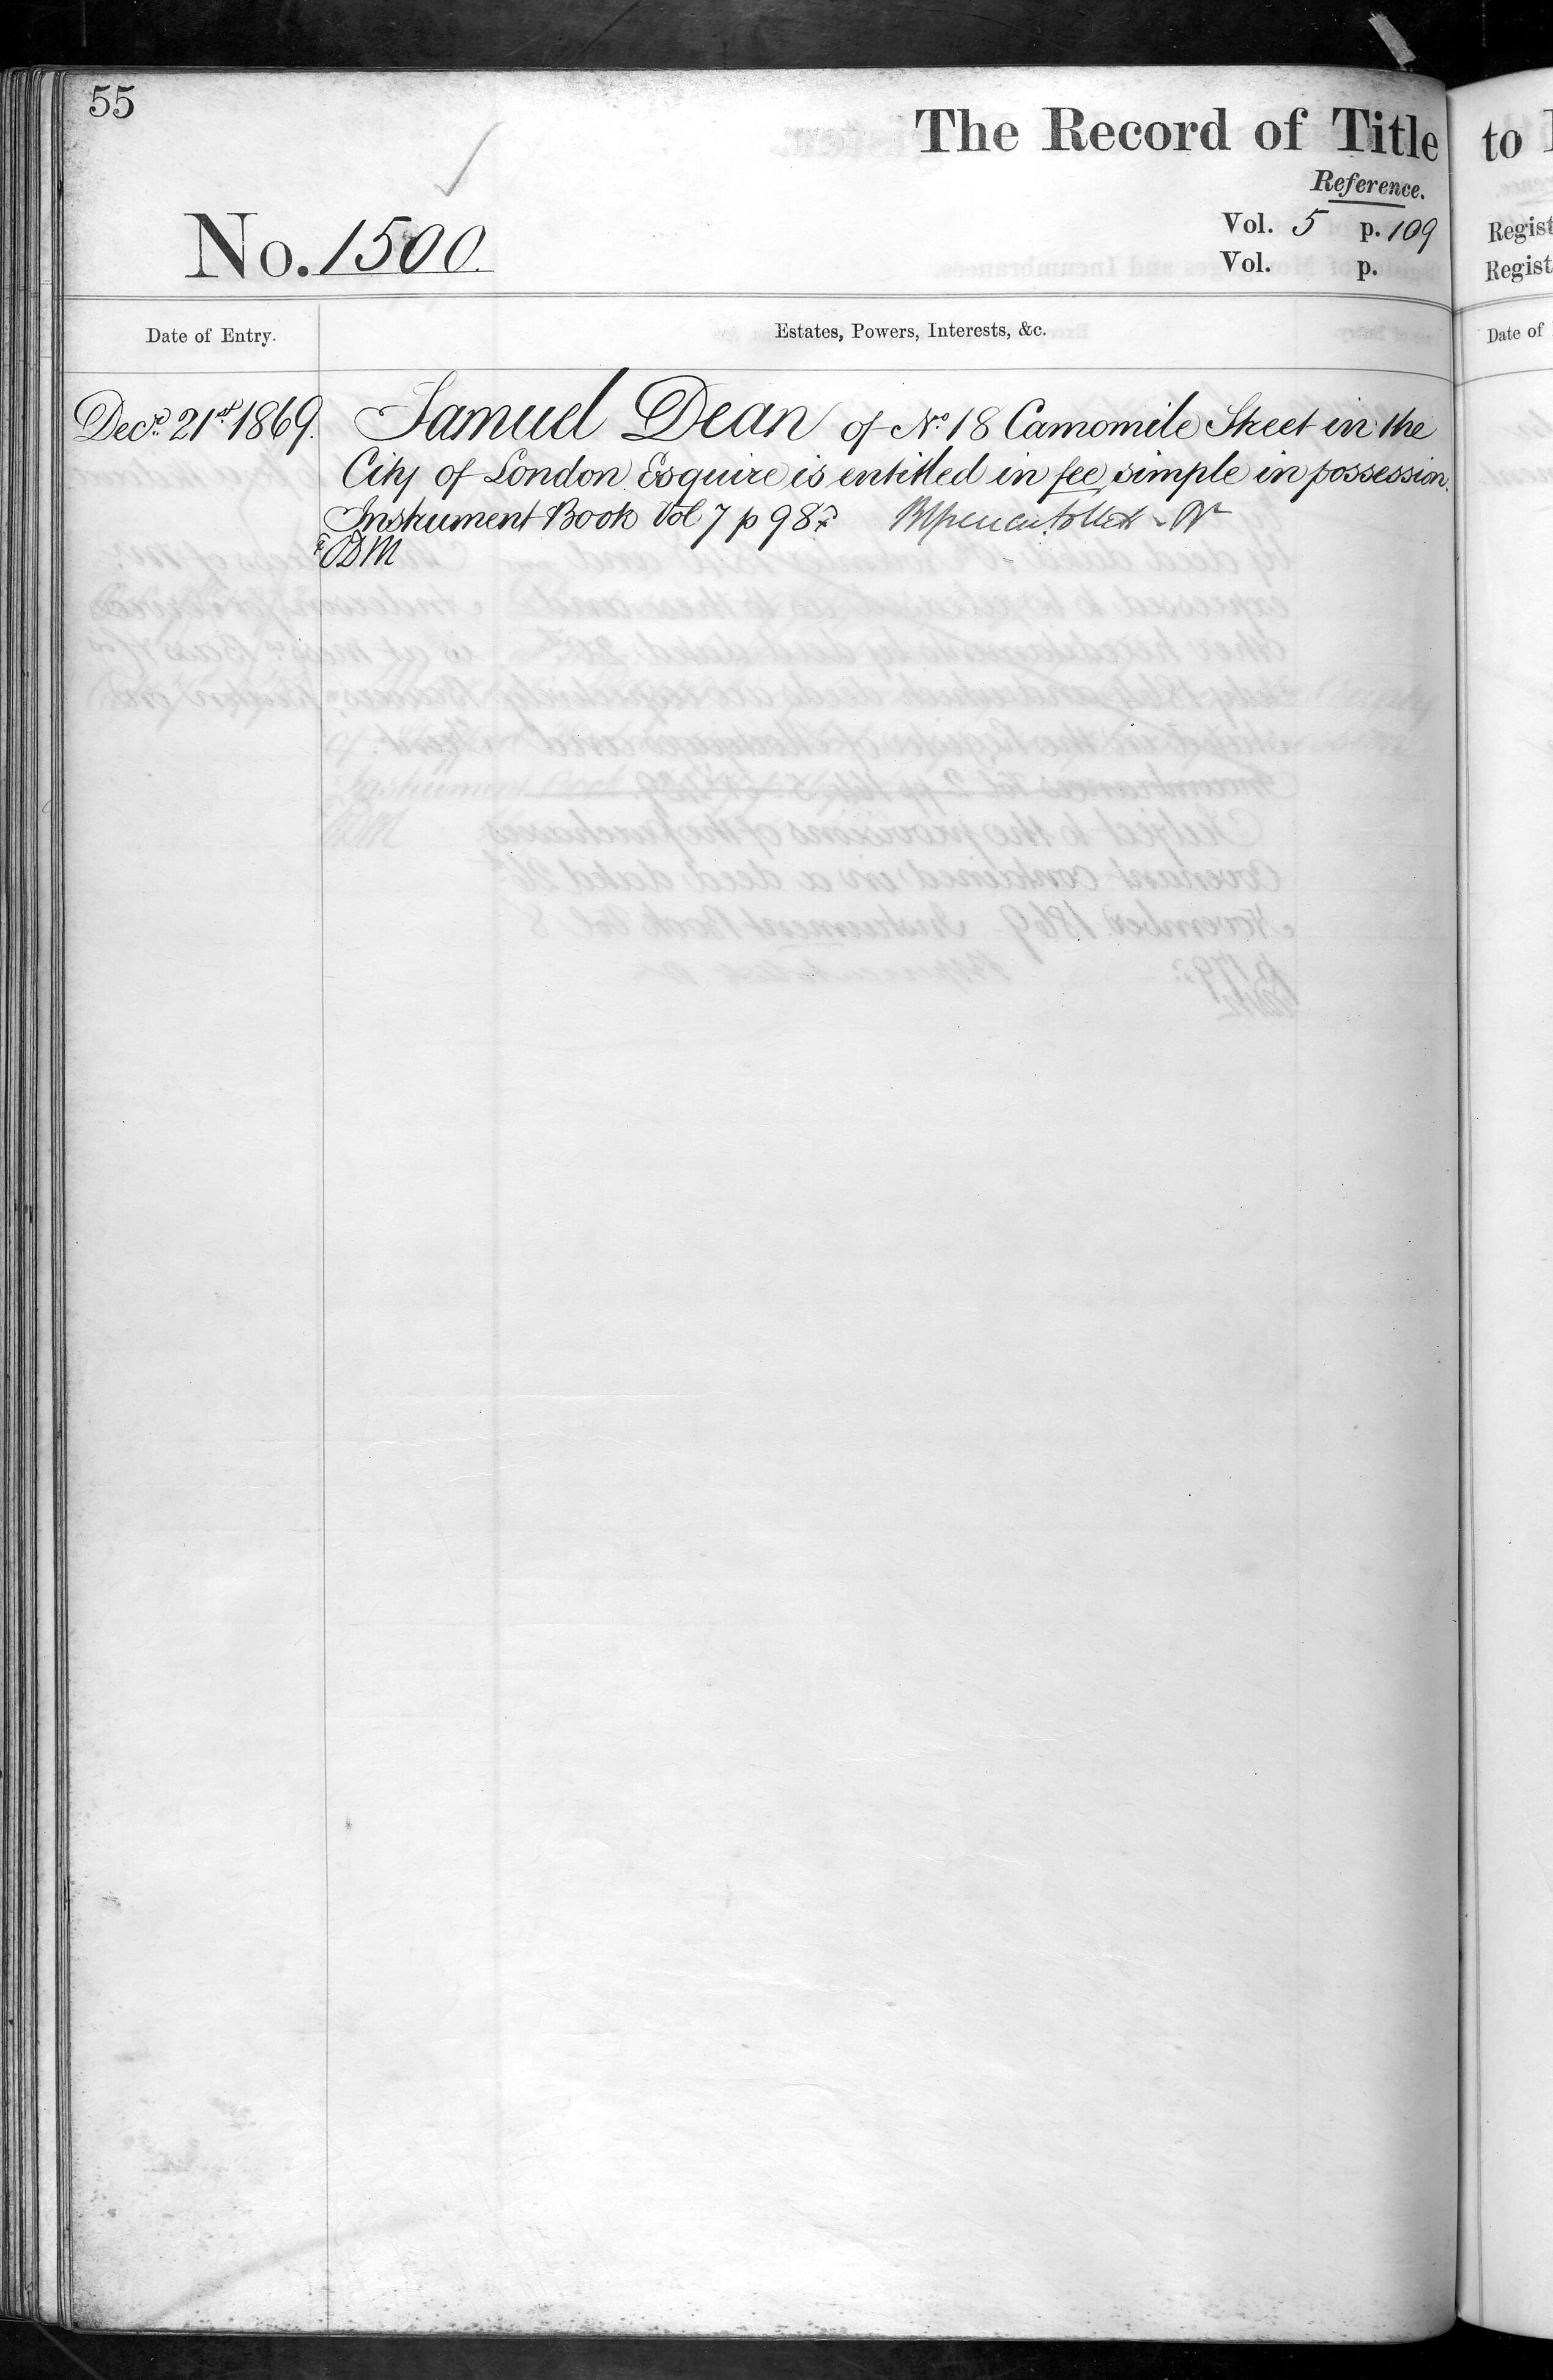 55
The Record of Title
to
Reference.
No. 1500.
Vol. 5 p. 109
Regist
Vol. p.
Regist
Date of Entry.
Estates, Powers, Interests, &c.
Date of
Decr. 21st 1869.
Samuel Dean of No. 18 Camomile Street in the
City of London Esquire is entitled in fee simple in possession.
Instrument Book Vol 7 p 98
ODM